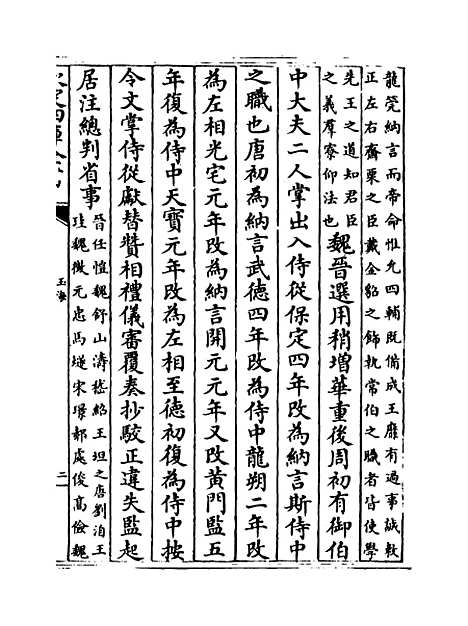 龍筦納言而帝命惟允四輔旣備成王靡有過事誠敕
正左右齊栗之臣戴金貂之飾執常伯之職者皆使學
先王之道知君臣
之義羣寮仰法也
魏晉選用稍增華重後周初有御伯
中大夫二人掌出入侍從保定四年改為納言斯侍中
之職也唐初為納言武德四年改為侍中龍朔二年改
為左相光宅元年改為納言開元元年又改黃門監五
年復為侍中天寶元年改為左相至德初復為侍中按
令文掌侍從獻替贊相禮儀審覆奏抄駮正違失監起
居注總判省事
晉任愷魏舒山濤嵇紹王坦之唐劉洎王
珪魏徵元忠馬燧宋璟郝處俊高儉魏
玉海
二